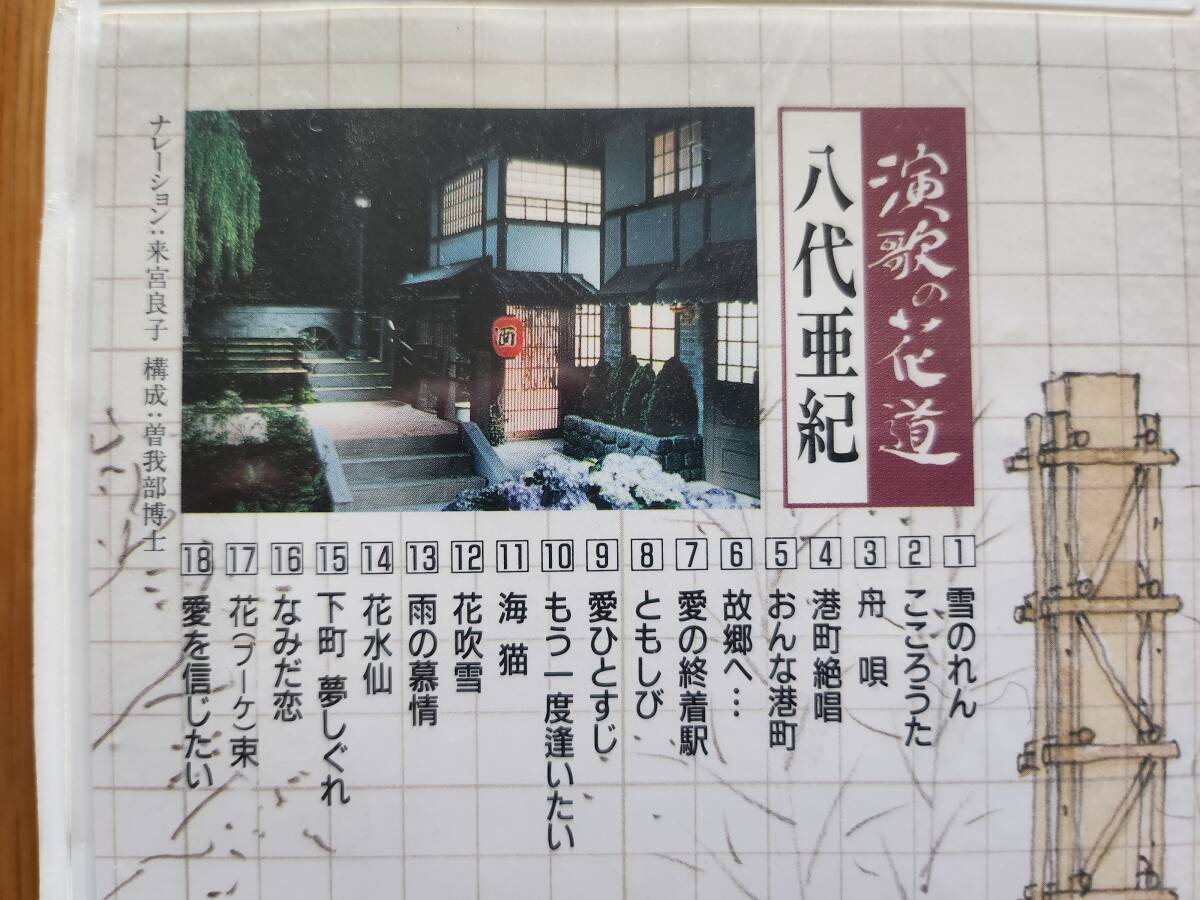 演歌の花道
八代亜紀
酒
1 雪のれん
2 こころうた
3 舟 唄
4 港町絶唱
5 おんな港町
6 故郷へ…
7 愛の終着駅
8 ともしび
9 愛ひとすじ
10 もう一度逢いたい
11 海 猫
12 花吹雪
13 雨の慕情
14 花水仙
15 下町 夢しぐれ
16 なみだ恋
17 花(ブーケ)束
18 愛を信じたい
ナレーション:来宮良子 構成:曽我部博士